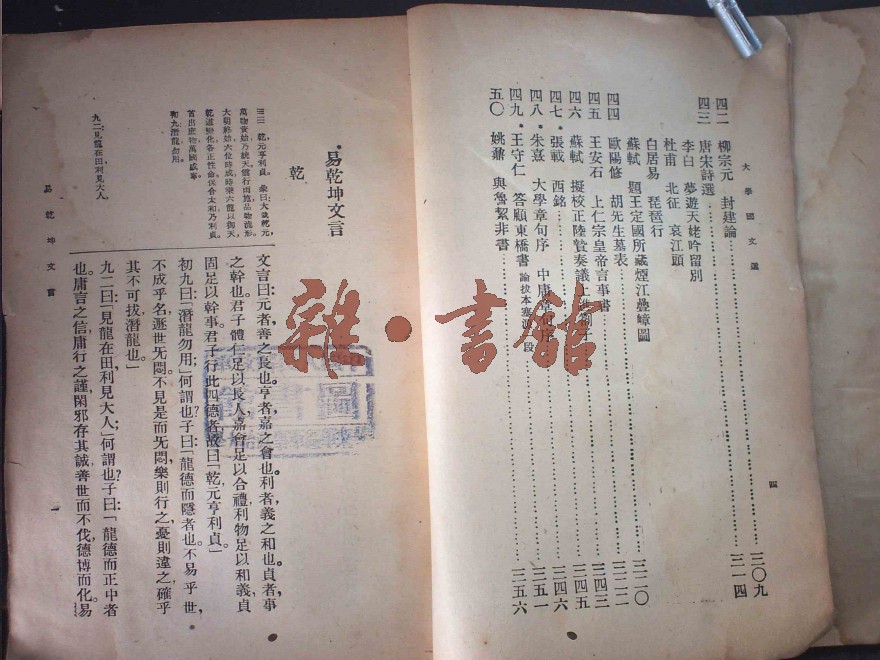 大學國文選
四
四二 柳宗元 封建論……三〇九
四三 唐宋詩選……三一四
李白 夢遊天姥吟留別
杜甫 北征 哀江頭
白居易 琵琶行
蘇軾 題王定國所藏煙江疊嶂圖
四四 歐陽修 胡先生墓表……三二〇
四五 王安石 上仁宗皇帝言事書……三二二
四六 蘇軾 擬校正陸贄奏議上進劄……三四三
四七•張載 西銘……三四五
四八•朱熹 大學章句序 中庸章句序……三四六
四九•王守仁 答顧東橋書 論拔本塞源一段……三五一
五〇 姚鼐 與魯絜非書……三五六
•易乾坤文言
乾
乾,元亨利貞。 彖曰:大哉乾元,
萬物資始乃統天雲行雨施品物流形。
大明終始六位時成時乘六龍以御天
乾道變化各正性命保合太和乃利貞
首出庶物萬國咸寧。
初九潛龍勿用。
九二見龍在田利見大人。
文言曰:元者,善之長也。亨者,嘉之會也利者,義之和也。貞者,事
之幹也。君子體仁足以長人,嘉會足以合禮,利物足以和義,貞
固足以幹事。君子行此四德者,故曰「乾元亨利貞」
初九曰:「潛龍勿用」何謂也?子曰:「龍德而隱者也。不易乎世,
不成乎名,遯世旡悶,不見是而旡悶,樂則行之,憂則違之,確乎
其不可拔,潛龍也。」
九二曰:「見龍在田利見大人;」何謂也?子曰:「龍德而正中者
也。庸言之信,庸行之謹,閑邪存其誠,善世而不伐,德博而化。易
易乾坤文言
一
雜•書館